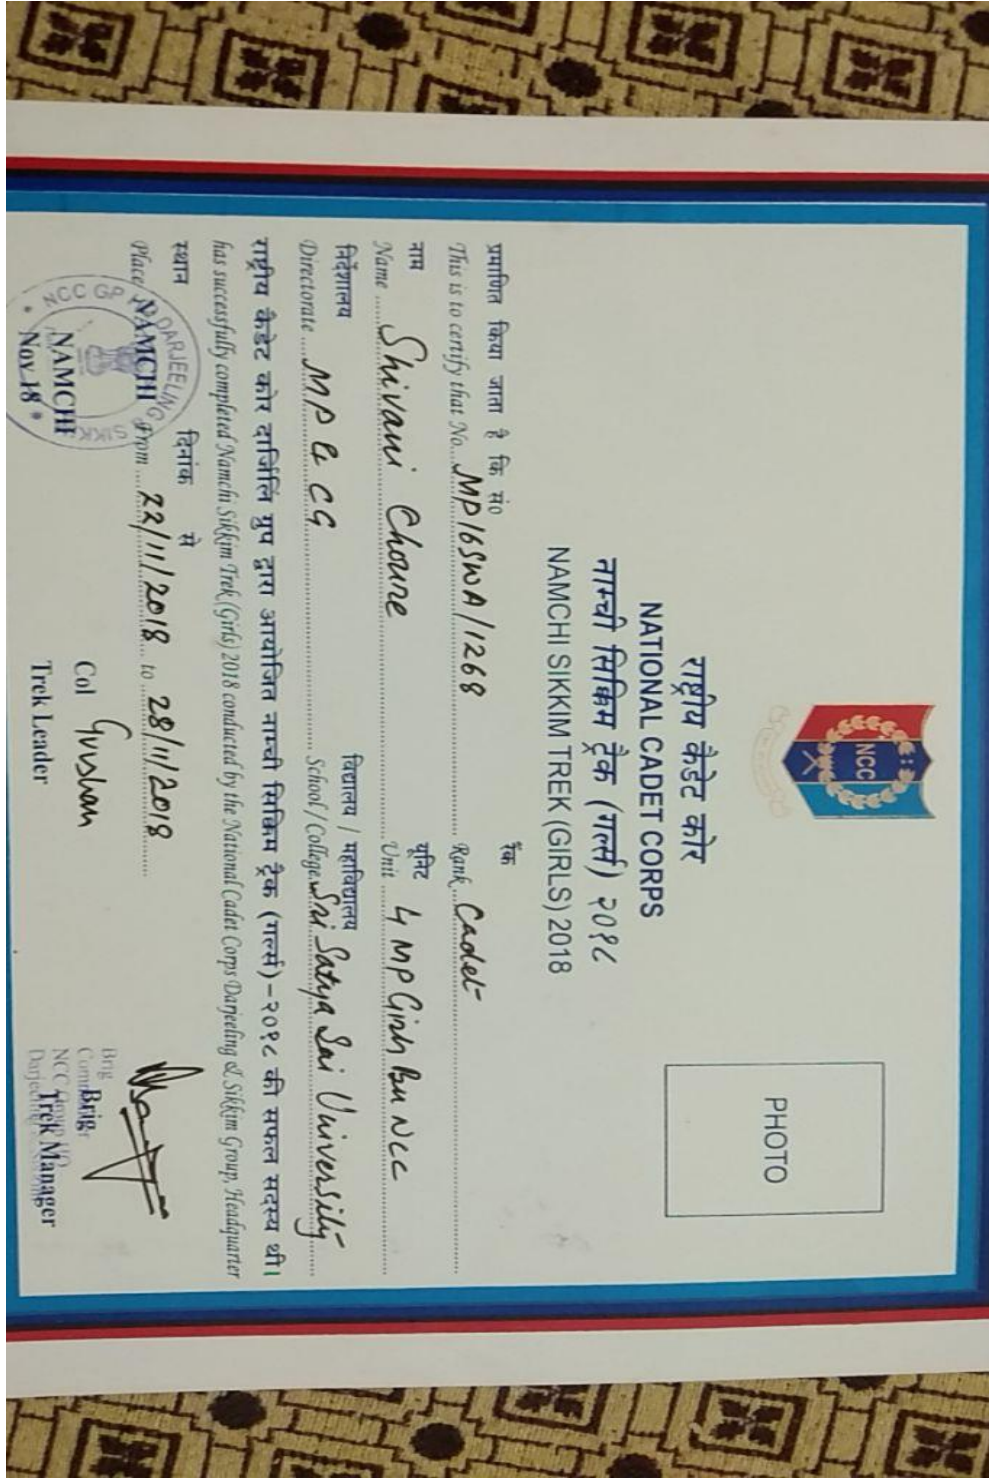 NCC
राष्ट्रीय कैडेट कोर
NATIONAL CADET CORPS
नाम्ची सिक्किम ट्रैक (गर्ल्स) २०१८
NAMCHI SIKKIM TREK (GIRLS) 2018
PHOTO
प्रमाणित किया जाता है कि सं० रैंक
This is to certify that No. MP16SWA/1268 Rank Cadet
नाम यूनिट
Name Shivani Choure Unit 4 MP Girls Bn NCC
निर्देशालय विद्यालय / महाविद्यालय
Directorate MP & CG School / College Sri Satya Sai University
राष्ट्रीय कैडेट कोर दार्जिलिं ग्रुप द्वारा आयोजित नाम्ची सिकिम ट्रैक (गर्ल्स)–२०१८ की सफल सदस्य थी।
has successfully completed Namchi Sikkim Trek (Girls) 2018 conducted by the National Cadet Corps Darjeeling & Sikkim Group, Headquarter
स्थान दिनांक से
Place NAMCHI From 22/11/2018 to 28/11/2018
NCC GP HQ DARJEELING & SIKKIM
NAMCHI
Nov 18
Col Gulshan
Trek Leader
Brig
Trek Manager